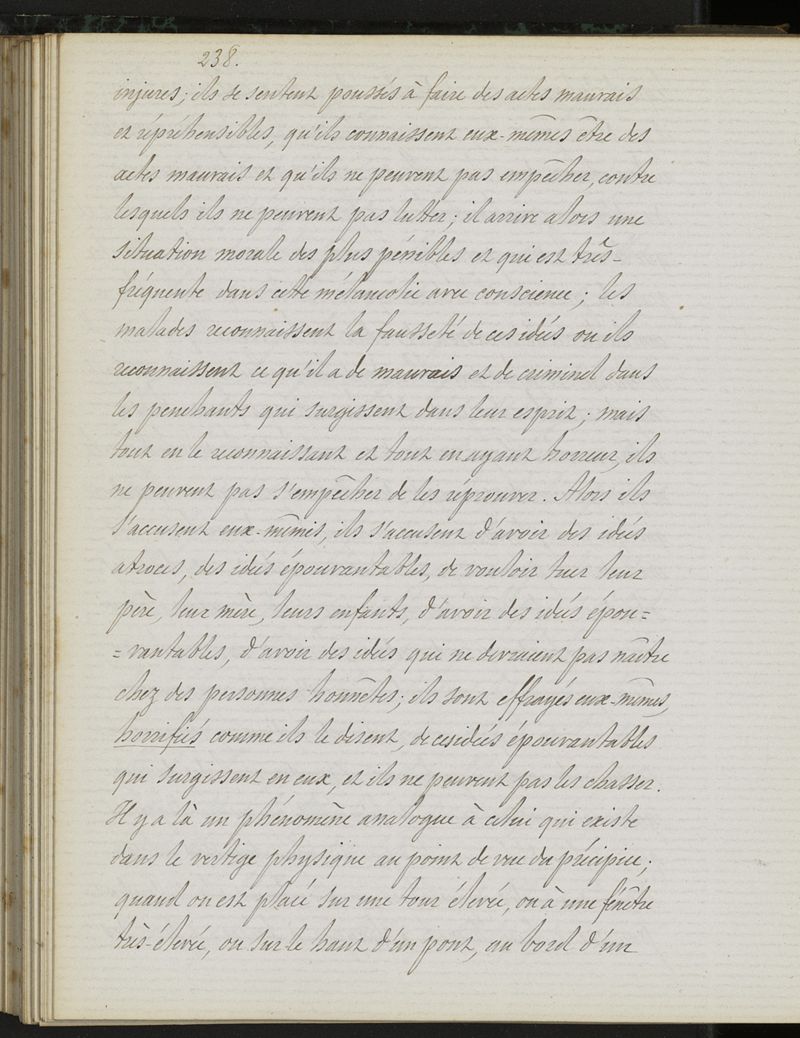 238.
injures; ils se sentent poussés à faire des actes mauvais
et répréhensibles, qu'ils connaissent eux-mêmes être des
actes mauvais et qu'ils ne peuvent pas empêcher, contre
lesquels ils ne peuvent pas lutter; il arrive alors une
situation morale des plus pénibles et qui est très-
fréquente dans cette mélancolie avec conscience; les
malades reconnaissent la fausseté de ces idées ou ils
reconnaissent ce qu'il a de mauvais et de criminel dans
les penchants qui surgissent dans leur esprit; mais
tout en le reconnaissant et tout en ayant horreur, ils
ne peuvent pas s'empêcher de les éprouver. Alors ils
s'accusent eux-mêmes, ils s'accusent d'avoir des idées
atroces, des idées épouvantables, de vouloir tuer leur
père, leur mère, leurs enfants, d'avoir des idées épou=
=vantables, d'avoir des idées qui ne devraient pas naître
chez des personnes honnêtes; ils sont effrayés eux-mêmes,
horrifiés comme ils le disent, de ces idées épouvantables
qui surgissent en eux, et ils ne peuvent pas les chasser.
Il y a là un phénomène analogue à celui qui existe
dans le vertige physique au point de vue du précipice;
quand on est placé sur une tour élevée, ou à une fenêtre
très-élevée, ou sur le haut d'un pont, au bord d'un